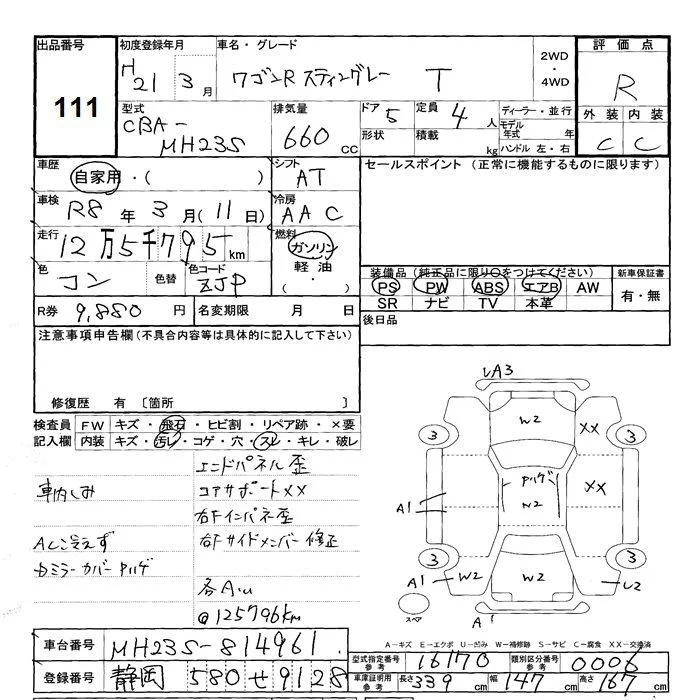 出品番号 初度登録年月 車名・グレード 2WD 評価点
111 H21 3月 ワゴンR スティングレー T ・4WD R
型式 排気量 ドア 5 定員 4人 ディーラー・並行 外装 内装
CBA-MH23S 660cc 形状 積載 kg モデル年式 年 ハンドル 左・右 C C
車歴 シフト セールスポイント (正常に機能するものに限ります)
自家用・( ) AT
車検 冷房
R8年3月(11日) AAC
走行 燃料
12万5千795km ガソリン
色 色替 色コード 軽油 装備品 (純正品に限り○をつけてください) 新車保証書
コン ZJP (・) PS PW ABS エアB AW 有・無
SR ナビ TV 本革
R券 9,880円 名変期限 月 日 後日品
注意事項申告欄 (不具合内容等は具体的に記入して下さい)
修復歴 有 〔箇所 〕
検査員 FW キズ・飛石・ヒビ割・リペア跡・×要
記入欄 内装 キズ・汚レ・コゲ・穴・スレ・キレ・破レ
エンドパネル歪
車内しみ コアサポートXX
右Fインパネ歪
ACに冷えず 右Fサイドメンバー修正
ミラーカバーヤハゲ
各AU
@125796km
UA3
W2 XX
3 3
ヤハゲ
A1 W2 XX
3 3
A1 W2 W2 U2
スペア A1
A－キズ E－エクボ U－凹み W－補修跡 S－サビ C－腐食 XX－交換済
車台番号 MH23S-814961
型式指定番号 参考 16170 類別区分番号 参考 0006
登録番号 静岡 580 せ 9128
車庫証明用 参考 長さ 339cm 幅 147cm 高さ 167cm